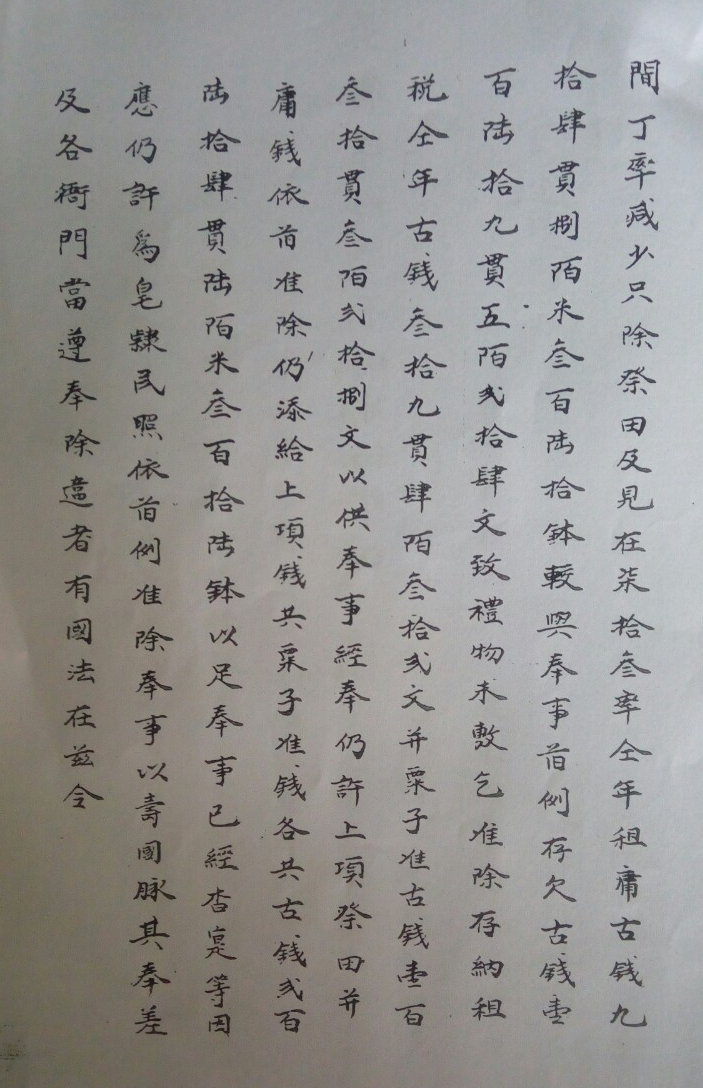 間丁率减少只除祭田及見在柒拾叁率仝年租庸古錢九
拾肆貫捌陌米叁百陆拾鉢較與奉事首例存欠古錢壹
百陆拾九貫五陌弍拾肆文致禮物未敷乞准除存納租
税仝年古錢叁拾九貫肆陌叁拾弍文并粟子准古錢壹百
叁拾貫叁陌弍拾捌文以供奉事經奉仍許上項祭田并
庸錢依首准除仍添給上項錢共粟子准錢各共古錢弍百
陆拾肆貫陆陌米叁百拾陆鉢以足奉事已經杳寔等因
應仍許爲皂隸民照依首例准除奉事以壽國脉其奉差
及各衙門當遵奉除違者有國法在兹令